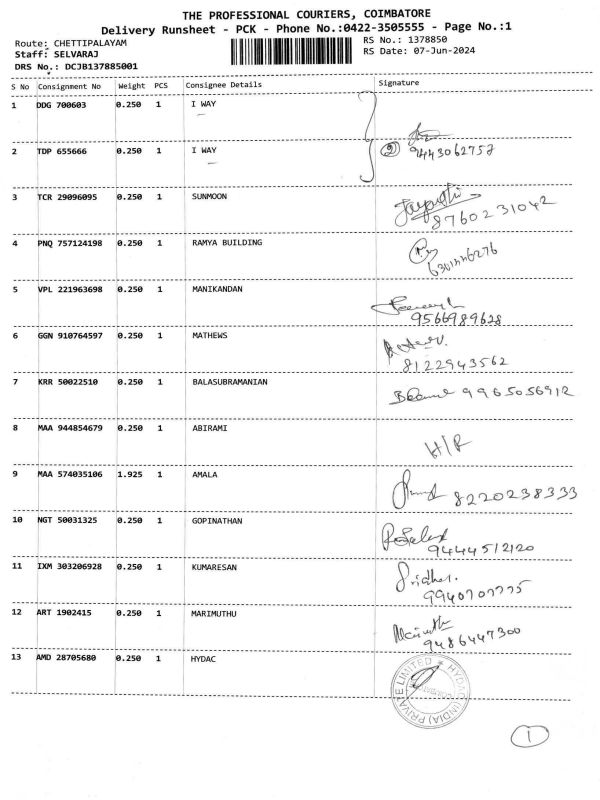 THE PROFESSIONAL COURIERS, COIMBATORE
Delivery Runsheet - PCK - Phone No.:0422-3505555 - Page No.:1
Route: CHETTIPALAYAM RS No.: 1378850
Staff: SELVARAJ RS Date: 07-Jun-2024
DRS No.: DCJB137885001
S No Consignment No Weight PCS Consignee Details Signature
1 DDG 700603 0.250 1 I WAY
2 TDP 655666 0.250 1 I WAY 2 9443062757
3 TCR 29096095 0.250 1 SUNMOON
8760231042
4 PNQ 757124198 0.250 1 RAMYA BUILDING
5 VPL 221963698 0.250 1 MANIKANDAN
9566989628
6 GGN 910764597 0.250 1 MATHEWS
8122943562
7 KRR 50022510 0.250 1 BALASUBRAMANIAN 9965056912
8 MAA 944854679 0.250 1 ABIRAMI
H/R
9 MAA 574035106 1.925 1 AMALA
8220238333
10 NGT 50031325 0.250 1 GOPINATHAN
9444512120
11 IXM 303206928 0.250 1 KUMARESAN Sridhar.
12 ART 1902415 0.250 1 MARIMUTHU
9486447300
13 AMD 28705680 0.250 1 HYDAC
HYDAC (INDIA) PRIVATE LIMITED
1